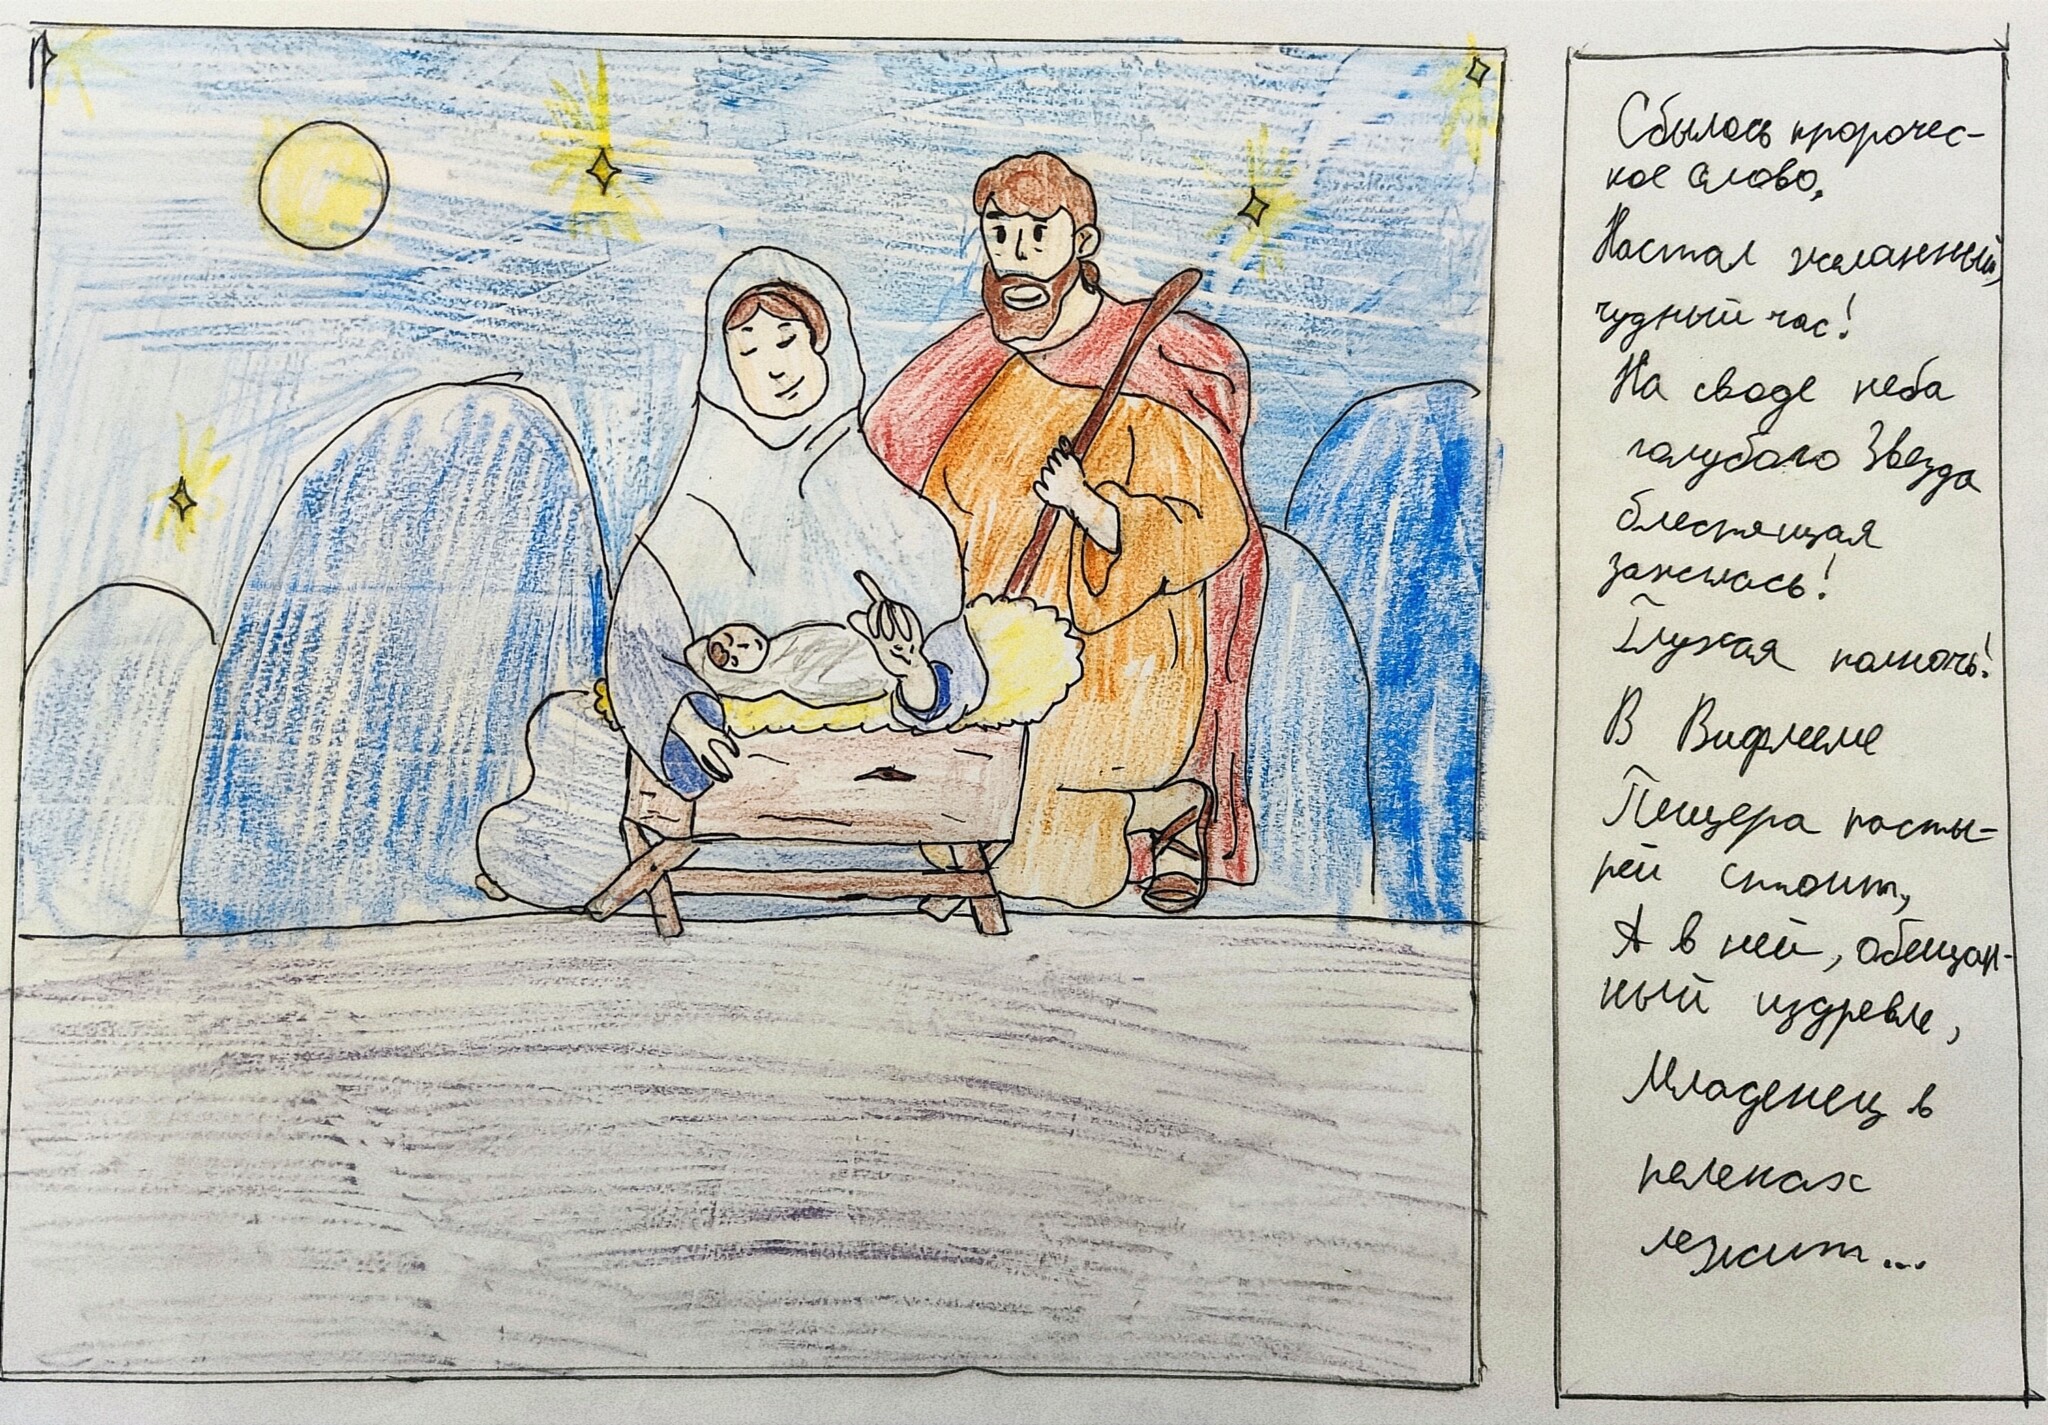 Сбылось пророчес-
кое слово,
Настал желанный,
чудный час!
На своде неба
голубого Звезда
блестящая
зажглась!
Глухая полночь!
В Вифлееме
Пещера пасты-
рей стоит,
А в ней, обещан-
ный издревле,
Младенец в
пеленах
лежит...